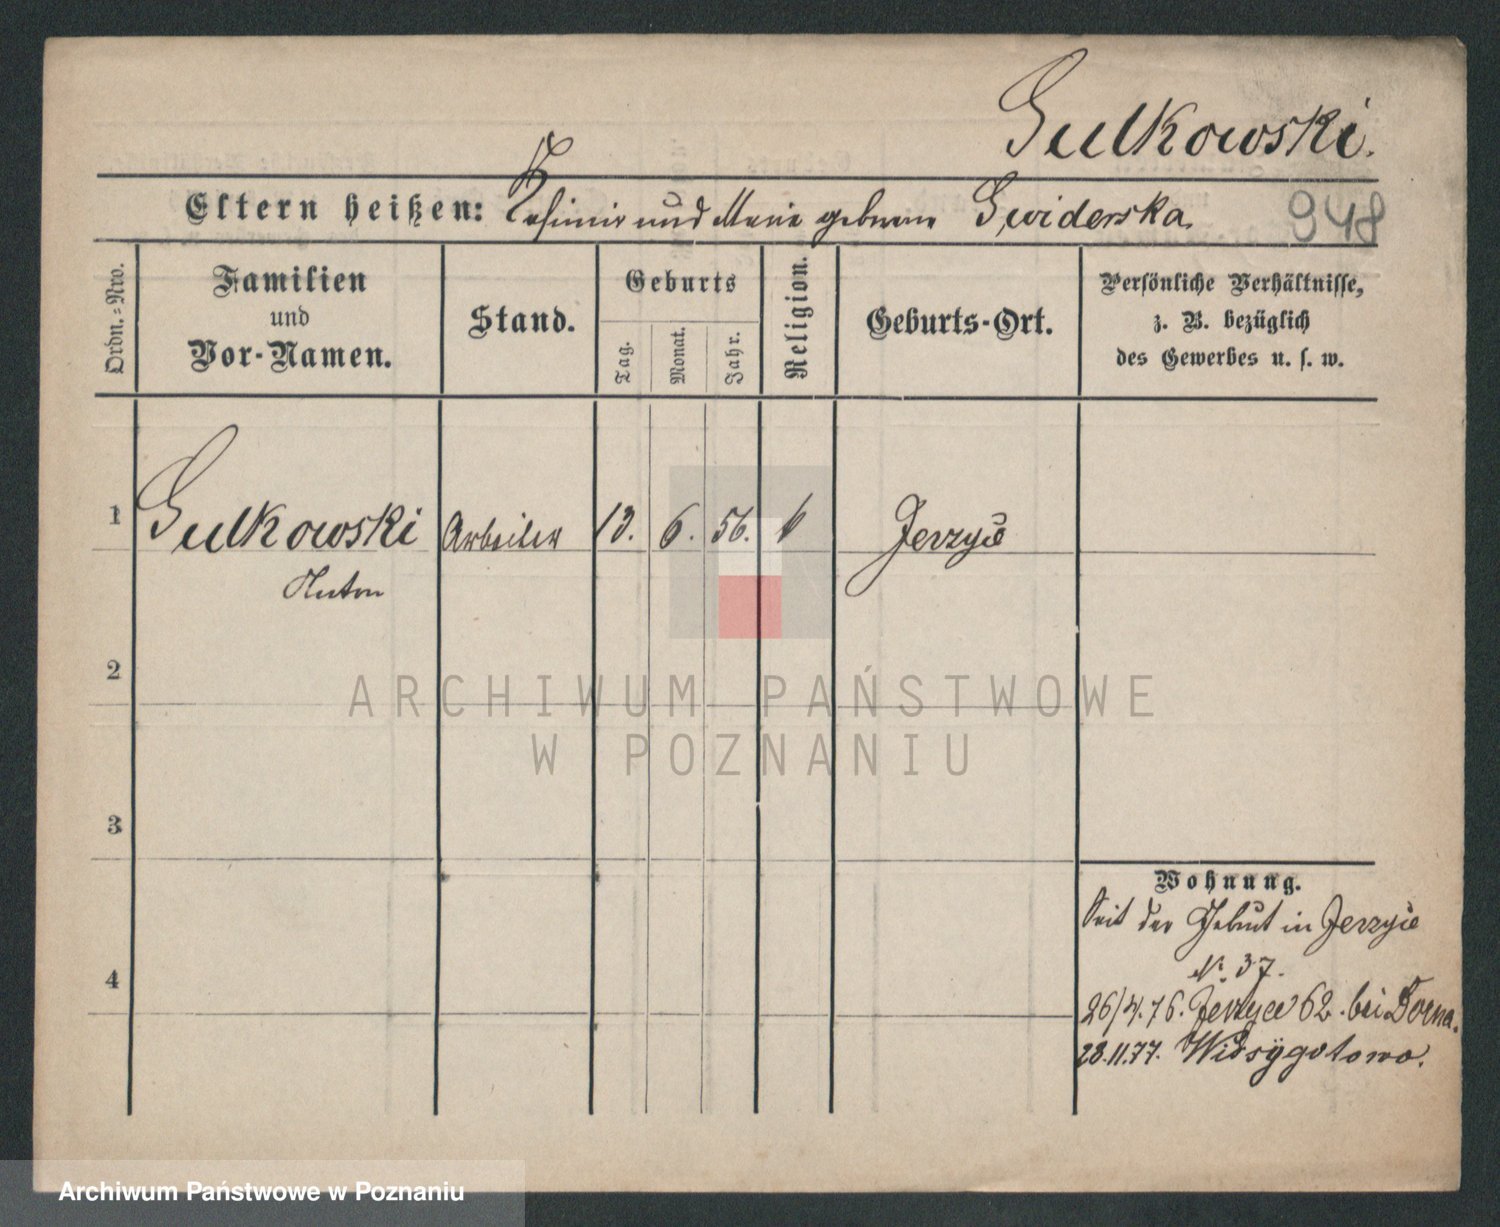 Sulkowski.
Eltern heißen: Kasimir und Marie geborene Swiderska.
948
Ordn.-Nro.
Familien
und
Vor-Namen.
Stand.
Geburts
Tag.
Monat.
Jahr.
Religion.
Geburts-Ort.
Persönliche Verhältnisse,
z. B. bezüglich
des Gewerbes u. s. w.
1 Sulkowski Arbeiter 13. 6. 56. Jerzyce
Anton
2
3
4
ARCHIWUM PAŃSTWOWE
W POZNANIU
Wohnung.
Seit der Geburt in Jerzyce
No. 37.
26/4.76. Jerzyce 62. bei
28.11.77.
Archiwum Państwowe w Poznaniu